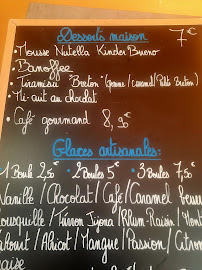 Desserts maison 7€
• Mousse Nutella Kinder Bueno
• Banoffee
• Tiramisu "Breton" (pomme/caramel/Palets Breton)
• Mi-cuit au chocolat
• Café gourmand 8,50€
Glaces artisanales:
1 Boule 2,50€ • 2 Boules 5€ • 3 Boules 7,50€
Vanille / Chocolat / Café / Caramel beurre
/ Turron Jijona / Rhum-Raisin /
/ Abricot / Mangue / Passion / Citron